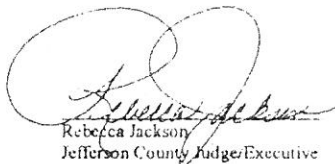 Rebecca Jackson
Rebecca Jackson
Jefferson County Judge/Executive